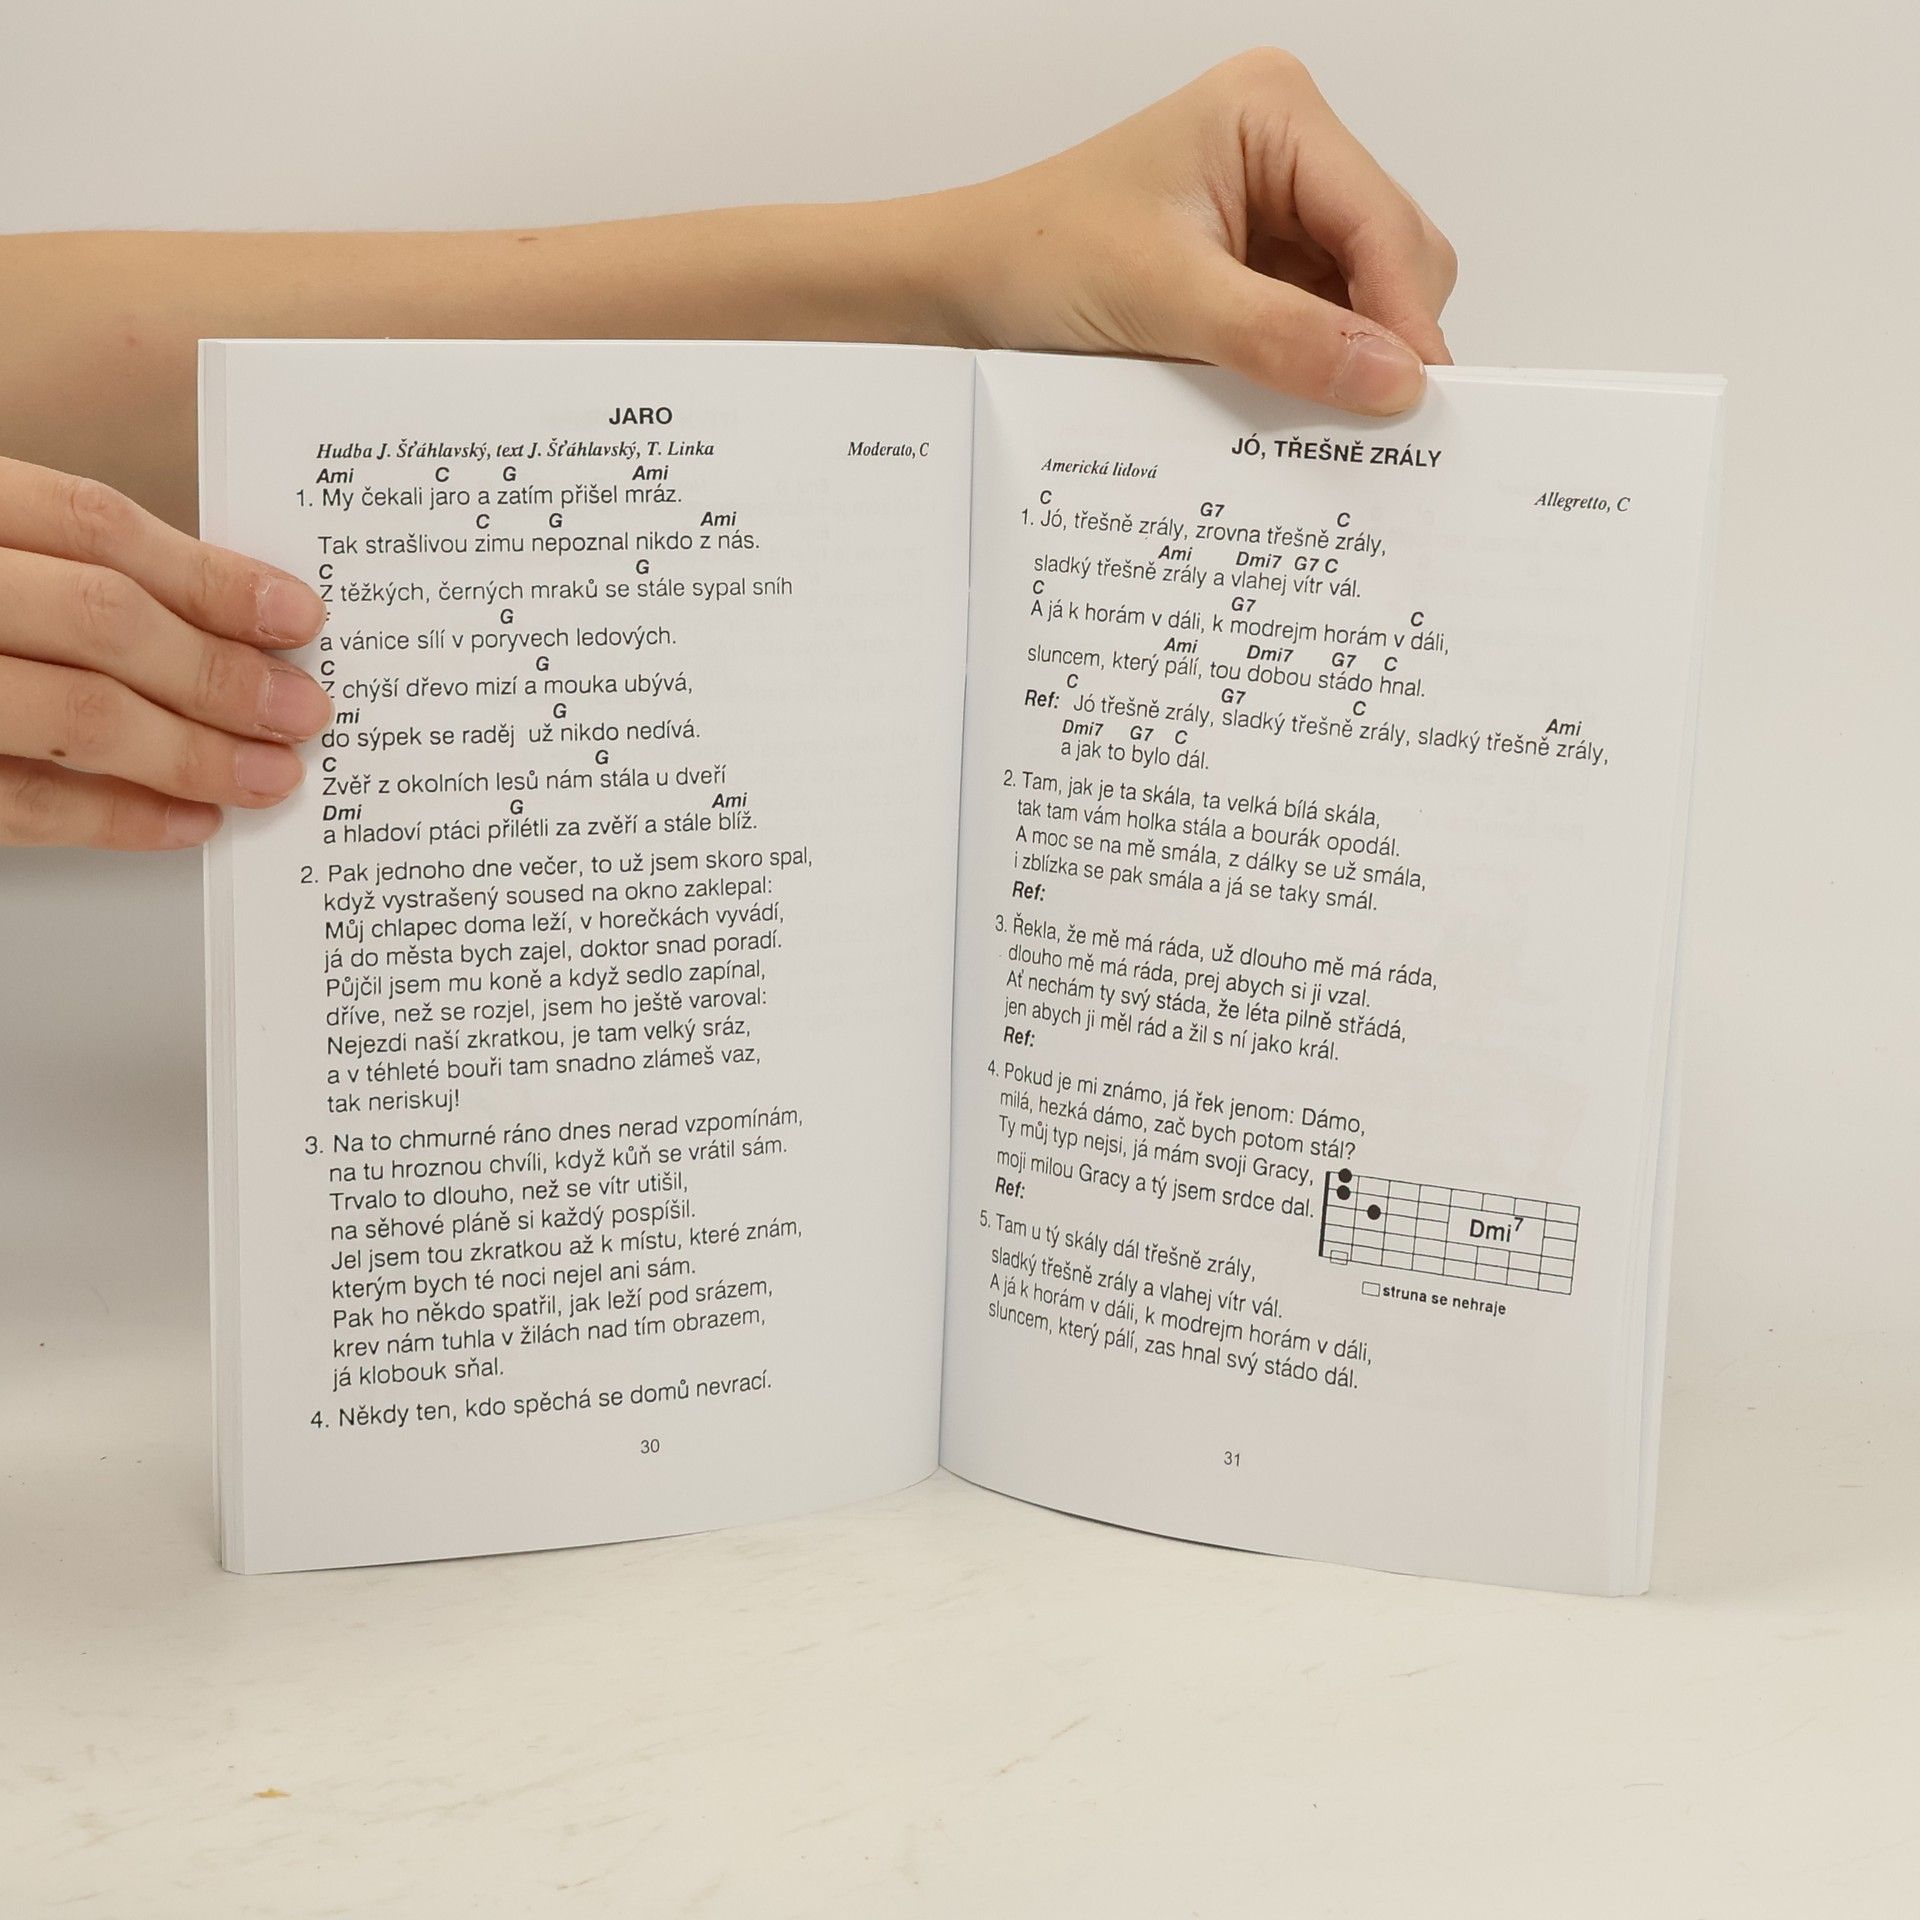 JARO
Hudba J. Šťáhlavský, text J. Šťáhlavský, T. Linka Moderato, C
Ami C G Ami
1. My čekali jaro a zatím přišel mráz.
C G Ami
Tak strašlivou zimu nepoznal nikdo z nás.
C G
Z těžkých, černých mraků se stále sypal sníh
G
a vánice sílí v poryvech ledových.
C G
Z chýší dřevo mizí a mouka ubývá,
mi G
do sýpek se raděj už nikdo nedívá.
C G
Zvěř z okolních lesů nám stála u dveří
Dmi G Ami
a hladoví ptáci přilétli za zvěří a stále blíž.
2. Pak jednoho dne večer, to už jsem skoro spal,
když vystrašený soused na okno zaklepal:
Můj chlapec doma leží, v horečkách vyvádí,
já do města bych zajel, doktor snad poradí.
Půjčil jsem mu koně a když sedlo zapínal,
dříve, než se rozjel, jsem ho ještě varoval:
Nejezdi naší zkratkou, je tam velký sráz,
a v téhleté bouři tam snadno zlámeš vaz,
tak neriskuj!
3. Na to chmurné ráno dnes nerad vzpomínám,
na tu hroznou chvíli, když kůň se vrátil sám.
Trvalo to dlouho, než se vítr utišil,
na sěhové pláně si každý pospíšil.
Jel jsem tou zkratkou až k místu, které znám,
kterým bych té noci nejel ani sám.
Pak ho někdo spatřil, jak leží pod srázem,
krev nám tuhla v žilách nad tím obrazem,
já klobouk sňal.
4. Někdy ten, kdo spěchá se domů nevrací.
30
JÓ, TŘEŠNĚ ZRÁLY
Americká lidová Allegretto, C
C G7 C
1. Jó, třešně zrály, zrovna třešně zrály,
Ami Dmi7 G7 C
sladký třešně zrály a vlahej vítr vál.
C G7 C
A já k horám v dáli, k modrejm horám v dáli,
Ami Dmi7 G7 C
sluncem, který pálí, tou dobou stádo hnal.
C G7 C Ami
Ref: Jó třešně zrály, sladký třešně zrály, sladký třešně zrály,
Dmi7 G7 C
a jak to bylo dál.
2. Tam, jak je ta skála, ta velká bílá skála,
tak tam vám holka stála a bourák opodál.
A moc se na mě smála, z dálky se už smála,
i zblízka se pak smála a já se taky smál.
Ref:
3. Řekla, že mě má ráda, už dlouho mě má ráda,
dlouho mě má ráda, prej abych si ji vzal.
Ať nechám ty svý stáda, že léta pilně střádá,
jen abych ji měl rád a žil s ní jako král.
Ref:
4. Pokud je mi známo, já řek jenom: Dámo,
milá, hezká dámo, zač bych potom stál?
Ty můj typ nejsi, já mám svoji Gracy,
moji milou Gracy a tý jsem srdce dal.
Ref:
Dmi7
struna se nehraje
5. Tam u tý skály dál třešně zrály,
sladký třešně zrály a vlahej vítr vál.
A já k horám v dáli, k modrejm horám v dáli,
sluncem, který pálí, zas hnal svý stádo dál.
31